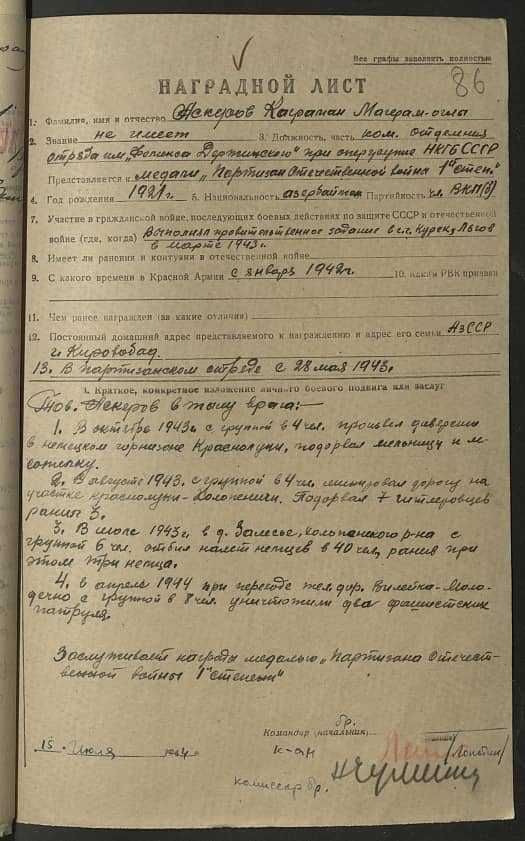 Все графы заполнять полностью
86
НАГРАДНОЙ ЛИСТ
1. Фамилия, имя и отчество Аскеров Каграман Маграм-оглы
2. Звание не имеет 3. Должность, часть ком. отделения
отряда им. „Феликса Держинского" при опергруппе НКГБ СССР
Представляется к медали „Партизан Отечественной война 1ой степ."
4. Год рождения 1921 г. 5. Национальность азербайджан Партийность чл. ВКП(б)
7. Участие в гражданской войне, последующих боевых действиях по защите СССР и отечественной
войне (где, когда) Выполнял правительственное задание в г.г. Курск, Льгов
в марте 1943 г.
8. Имеет ли ранения и контузии в отечественной войне
9. С какого времени в Красной Армии с января 1942 г. 10. Каким РВК призван
11. Чем ранее награжден (за какие отличия)
12. Постоянный домашний адрес представляемого к награждению и адрес его семьи АзССР
г. Кировобад
13. В партизанском отряде с 28 мая 1943 г.
1. Краткое, конкретное изложение личного боевого подвига или заслуг
Тов. Аскеров в тылу врага:—
1. В октябре 1943 г. с группой в 4 чел. произвел диверсию
в немецком горнизоне Краснолуки, подорвал мельницу и
2. В августе 1943. с группой в 4 чел. минировал дорогу на
участке Краснолуки- Подорвал 7 гитлеровцев
ранил 3.
3. В июле 1943 г. в д. Залесье, р-на с
группой 6 чел. отбил налет немцев в 40 чел, ранив при
этом три немца.
4. в апреле 1944 при переходе жел. дор. Вилейка-Моло-
дечно с группой в 8 чел. уничтожили два фашистских
патруля.
Заслуживает награды медалью „Партизана Отечест-
венной войны 1ой степени"
Командир (начальник) бр.
15 Июля 1944 к-ан /Лопатин/
комиссар бр.